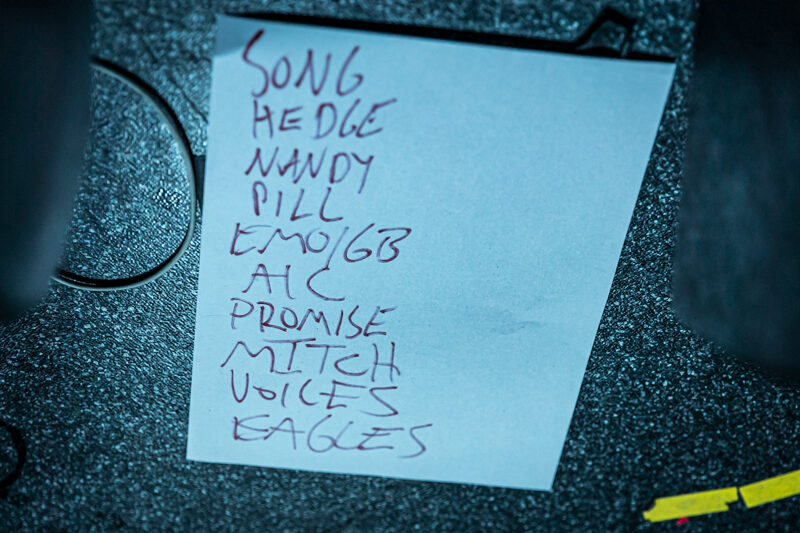 SONG
HEDGE
NANDY
PILL
EMO/GB
AIC
PROMISE
MITCH
VOICES
EAGLES